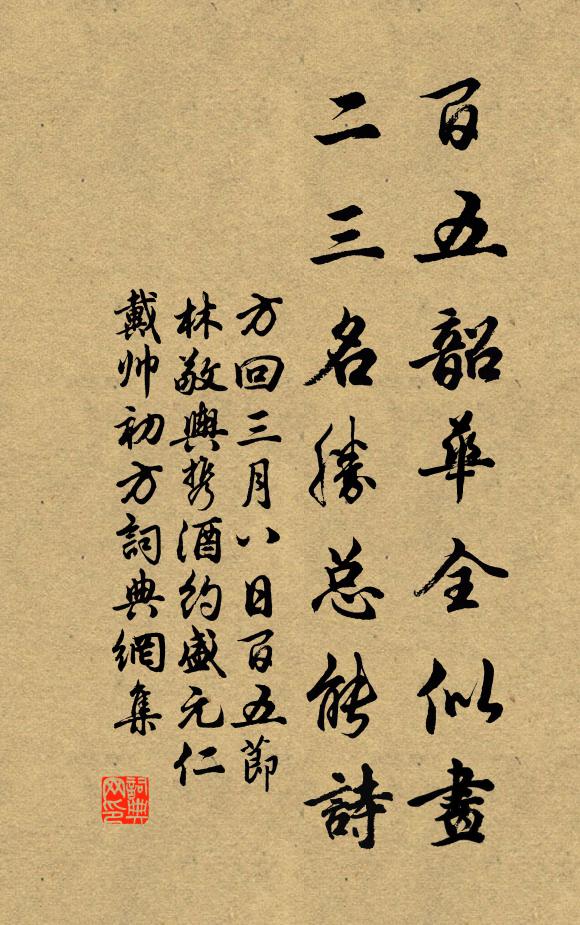 百五韶華全似畫
二三名勝总能詩
方回三月八日百五節
林敬輿携酒約盛元仁
戴帅初方詞典網集
詞典网印